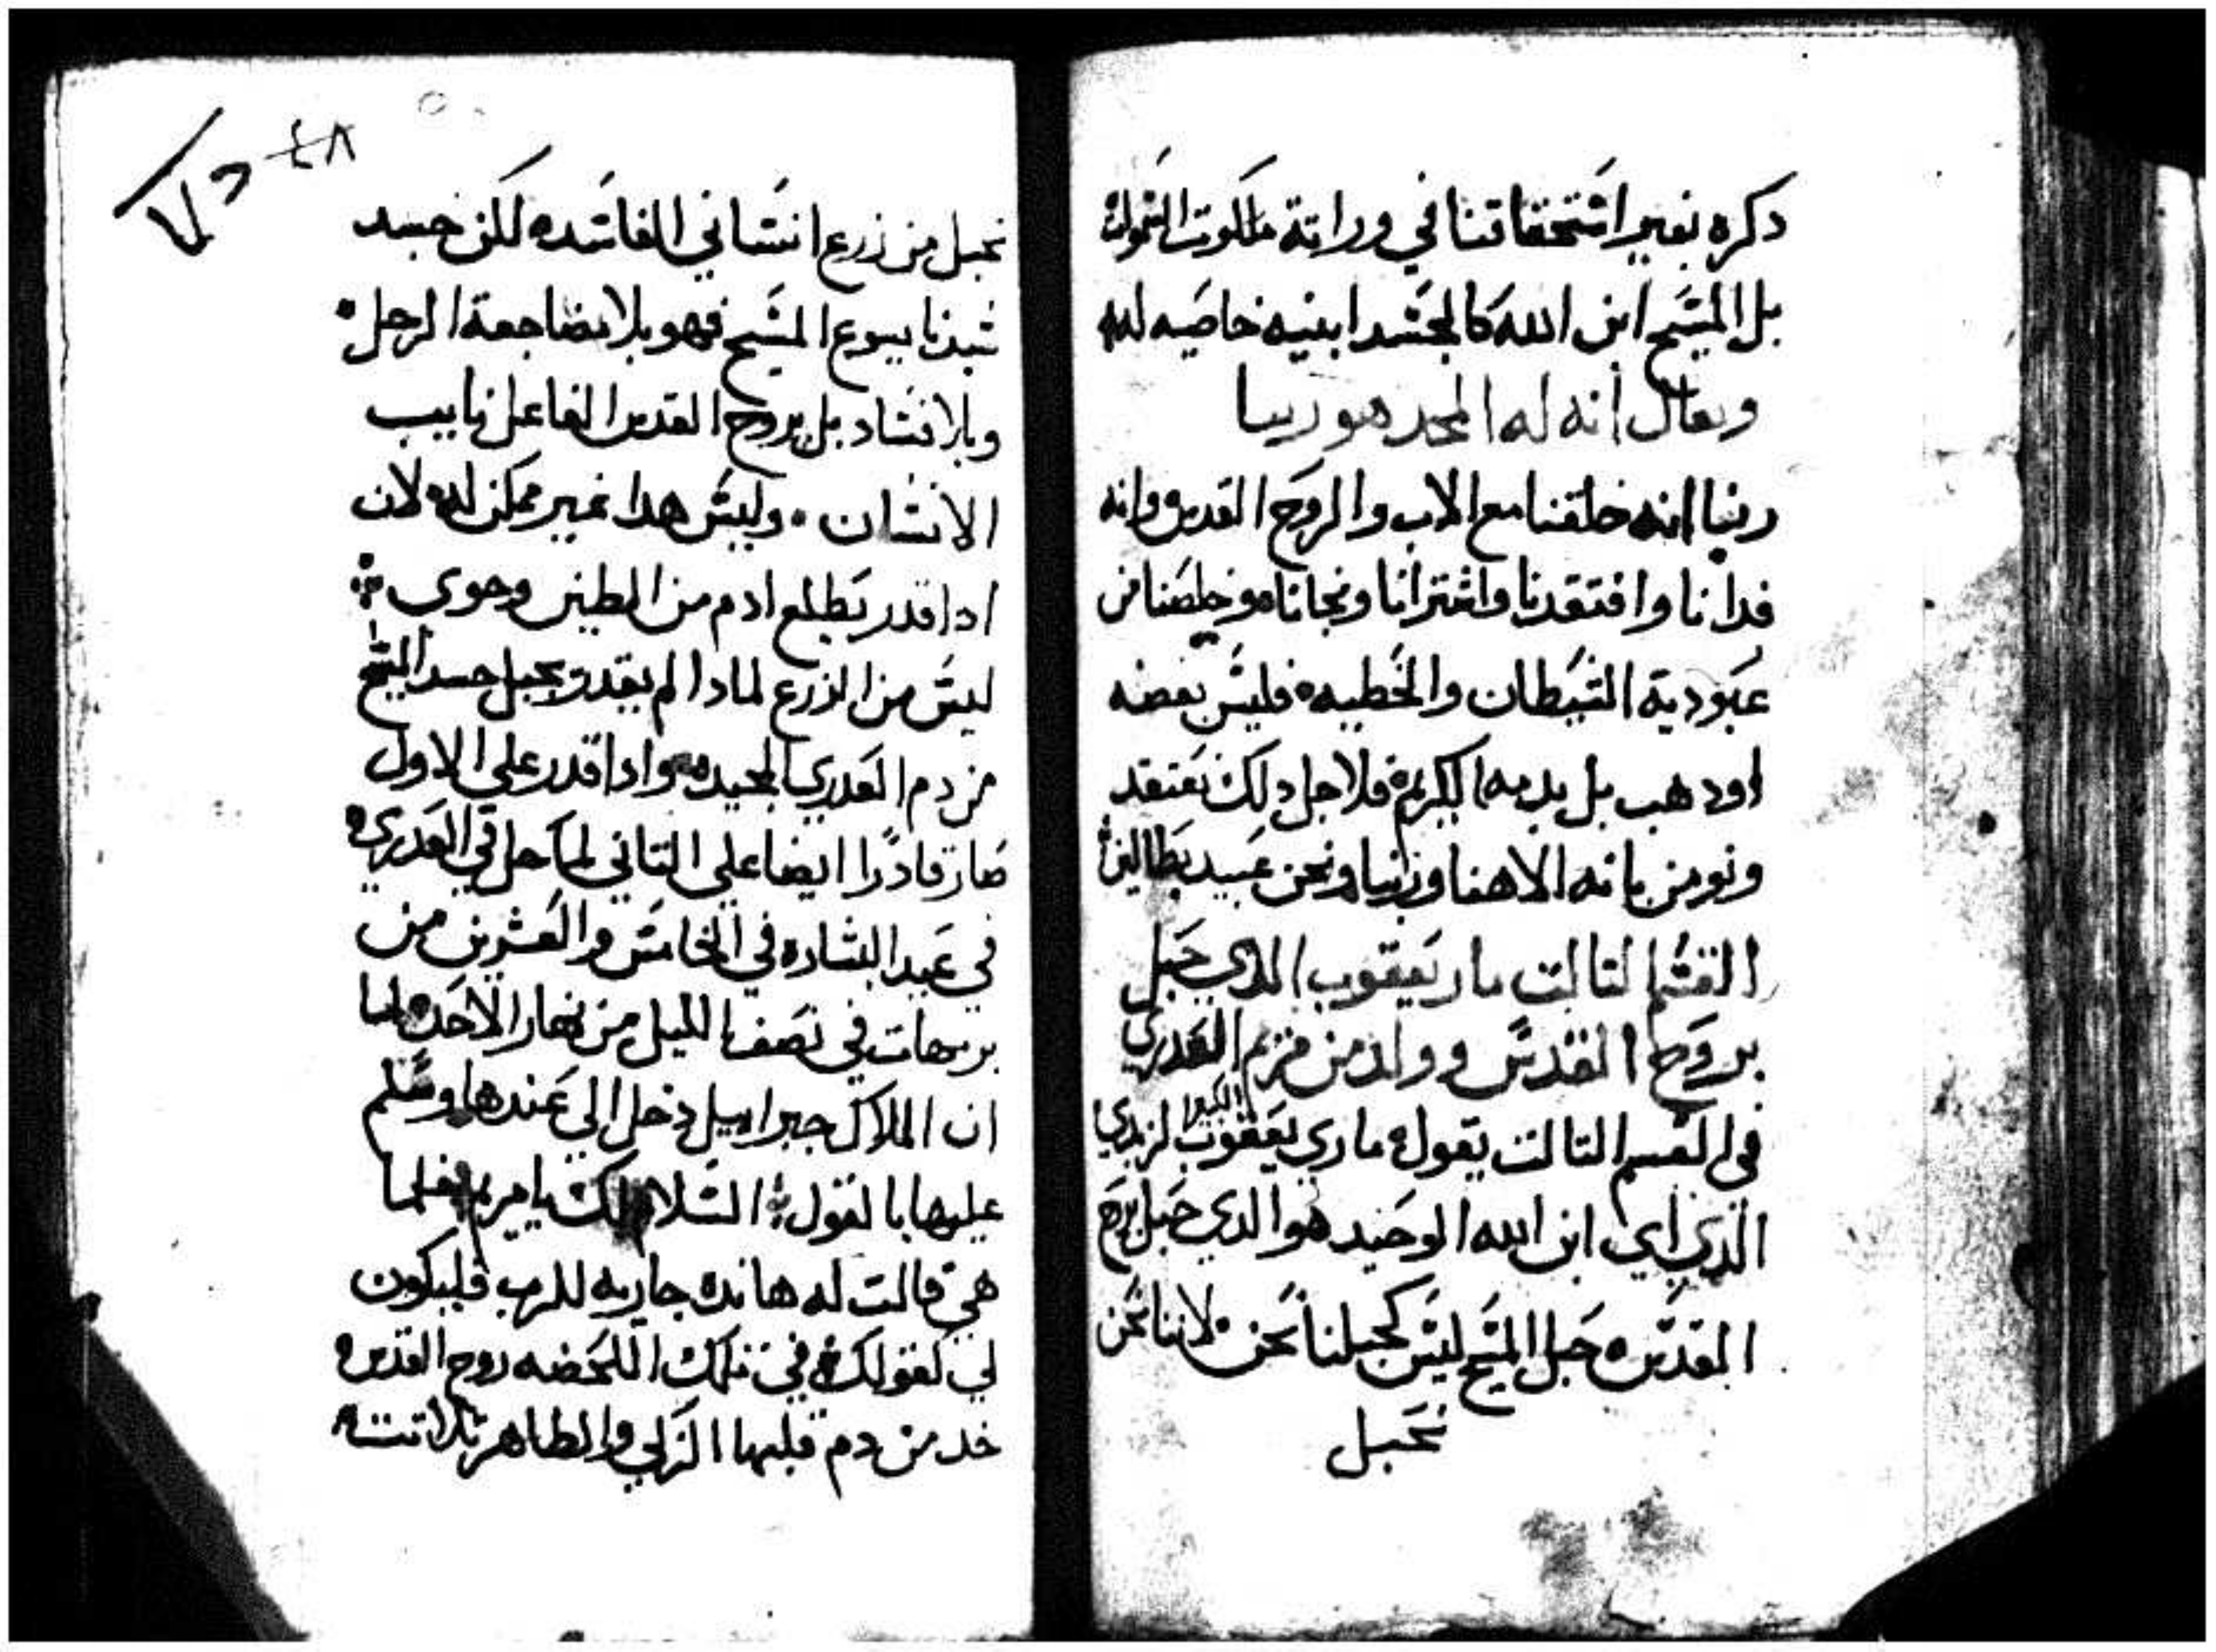 دكره بغير اشتحقاقتنا في وراتة ملكوت السموات
بل المشيح ابن الله كالجشد ابنيه خاصيه لله
ويقال انه له المجد هو ربنا
ربنا انه خلقنا مع الاب والروح القدس وانه
فدانا وافتقدنا واشترانا ونجانا وخلصنا من
عبودية الشيطان والخطيه فليش بفضه
او دهب بل بدمه الكريم فلاجل دلك نعتقد
ونومن بانه الاهنا وربنا ونحن عبيد بطالين
القشم التالت مار يعقوب الدي حبل
بروح القدس وولد من مريم العدري
في القسم التالت يقول ماري يعقوب الكبير الزبدي
الدي اي ابن الله الوحيد هو الدي حبل بروح
القدس حبل المشيح ليش كحبلنا نحن لاننا نحن
نحبل
نحبل من زرع انشاني الفاشده لكن جسد
شيدنا يسوع المشيح فهو بلا مضاجعة الرجل
وبلا فشاد بل بروح القدس الفاعل نايب
الانشان وليش هدا غير ممكن لله لان
ادا قدر يطلع ادم من الطين وحوي
ليش من الزرع لمادا لم يقدر يحبل جسد المشيح
من دم العدري المجيده وادا قدر علي الاول
صار قادرًا ايضا علي التاني لما حل في العدري
في عيد البشاره في الخامش والعشرين من
برمهات في نصف الليل من نهار الاحد لما
ان الملاك جبراييل دخل الي عندها وشلم
عليها بالقول السلام لك يا مريم فلما
هي قالت له هانده جاريه للرب فليكون
لي كقولك في تلك اللحضه روح القدس
خد من دم قلبها الزكي والطاهر تلاتت